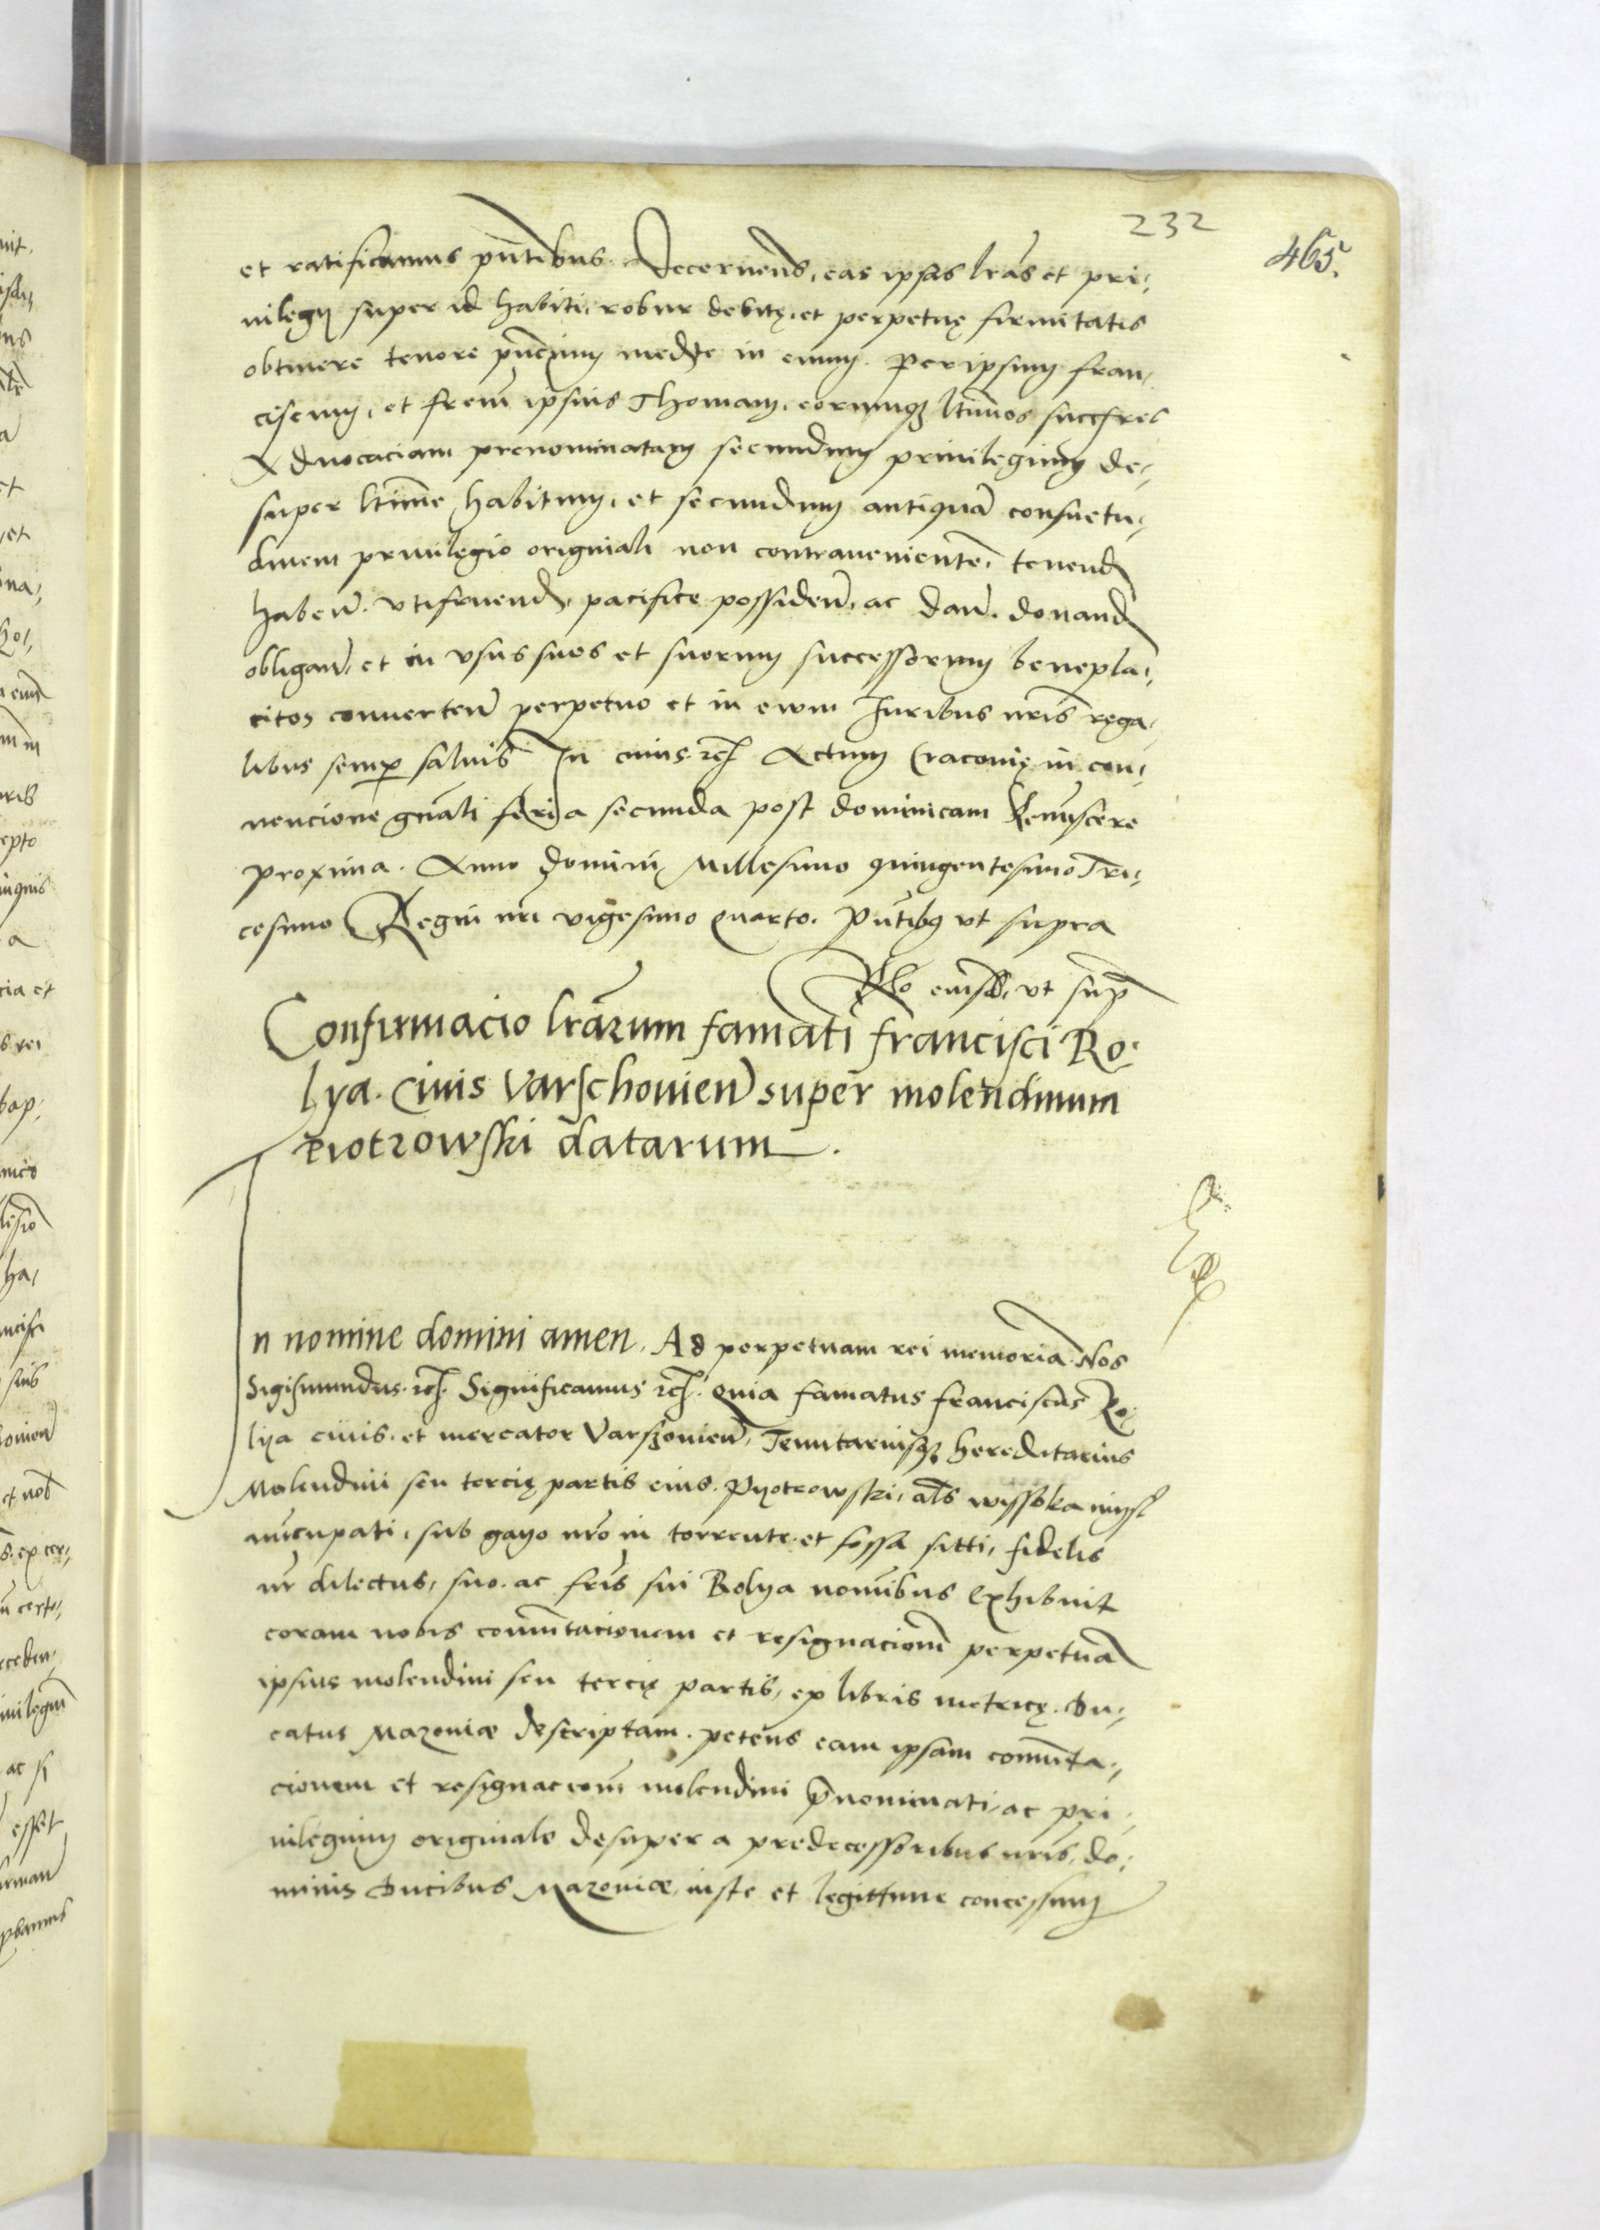 232
465
et ratificamus pñtibus. Decernend, eas ipsas lrãs et pri,
uilegij super id habiti, robur debitę, et perpetuę firmitatis
obtinere tenore pñcium medñte in euum. Per ipsum fran,
ciscum, et frem ipsius Thomam, eorumqʒ ltimos succsres
Aduocaciam prenominatam secundum priuilegium de,
super ltime habitum, et secundum antiquã consuetu,
dinem priuilegio originali non contrauenientẽ, tenend
habeñ. vtifruend, pacifice possideñ, ac dañ. donand
obligañ, et in vsus suos et suorum successorum benepla,
citos conuerteñ perpetuo et in ewm Iuribus nrĩs rega,
libus semp saluis In cuius rcʒ Actum Cracouię in con,
uencione gnãli feria secunda post dominicam Remiscere
proxima. Anno domini Millesimo quingentesimo Tri,
cesimo Regni nrĩ vigesimo quarto. Pñtibʒ vt supra
Rlo eiusd, vt sup
Confirmacio lrãrum famati francisci Ro,
lya. Ciuis Varschouieñ super molendinum
Piotrowski datarum.
In nomine domini amen. Ad perpetuam rei memoriã. Nos
Sigismundus. rcʒ. Significamus rcʒ. quia famatus franciscus Ro,
lya ciuis. et mercator Varschouieñ, Tenutariusqʒ hereditarius
Molendini seu tercię partis eius. Pyotrowski, als wissoka
nuncupati, sub gayo nrõ in torrente. et fossa sitti, fidelis
nr dilectus, suo. ac frĩs sui Rolya nomibus Exhibuit
coram nobis comutacionem et resignacionẽ perpetuã
ipsius molendini seu tercię partis, ex libris metricę. Du,
catus Mazouiæ descriptam. petens eam ipsam comuta,
cionem et resignacionẽ molendini p̃nominati, ac pri,
uilegium originale desuper a predecessoribus nrĩs, do,
minis Ducibus Mazouiæ, iuste et legittime concessum